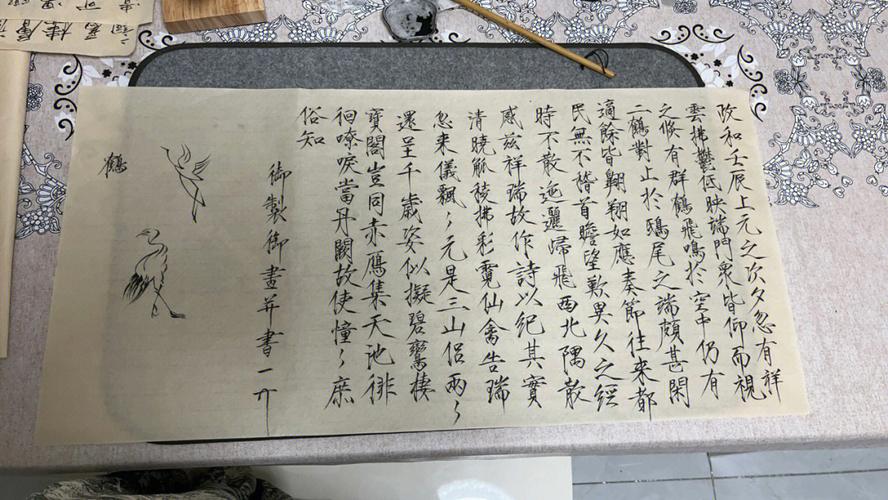 政和壬辰上元之次夕忽有祥
雲拂鬱低映端門眾皆仰而視
之倏有群鶴飛鳴於空中仍有
二鶴對止於鴟尾之端頗甚閑
適餘皆翱翔如應奏節往來都
民無不稽首瞻望歎異久之經
時不散迤邐歸飛西北隅散
感茲祥瑞故作詩以紀其實
清曉觚稜拂彩霓仙禽告瑞
忽来儀飄〻元是三山侶兩〻
還呈千歲姿似擬碧鸞棲
寶閣豈同赤鴈集天池徘
徊嘹唳當丹闕故使憧〻庶
俗知
御製御畫并書
鶴